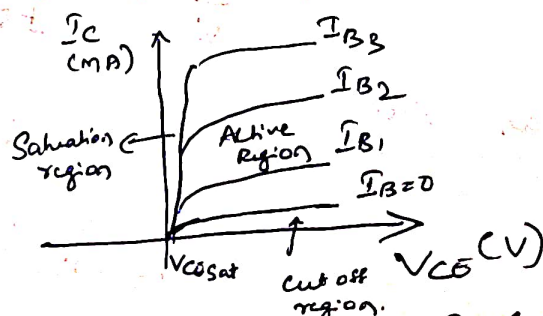 IC
(mA)
IB3
IB2
Saturation
region
Active
Region
IB1
IB=0
VCESat
cut off
region.
VCE (V)